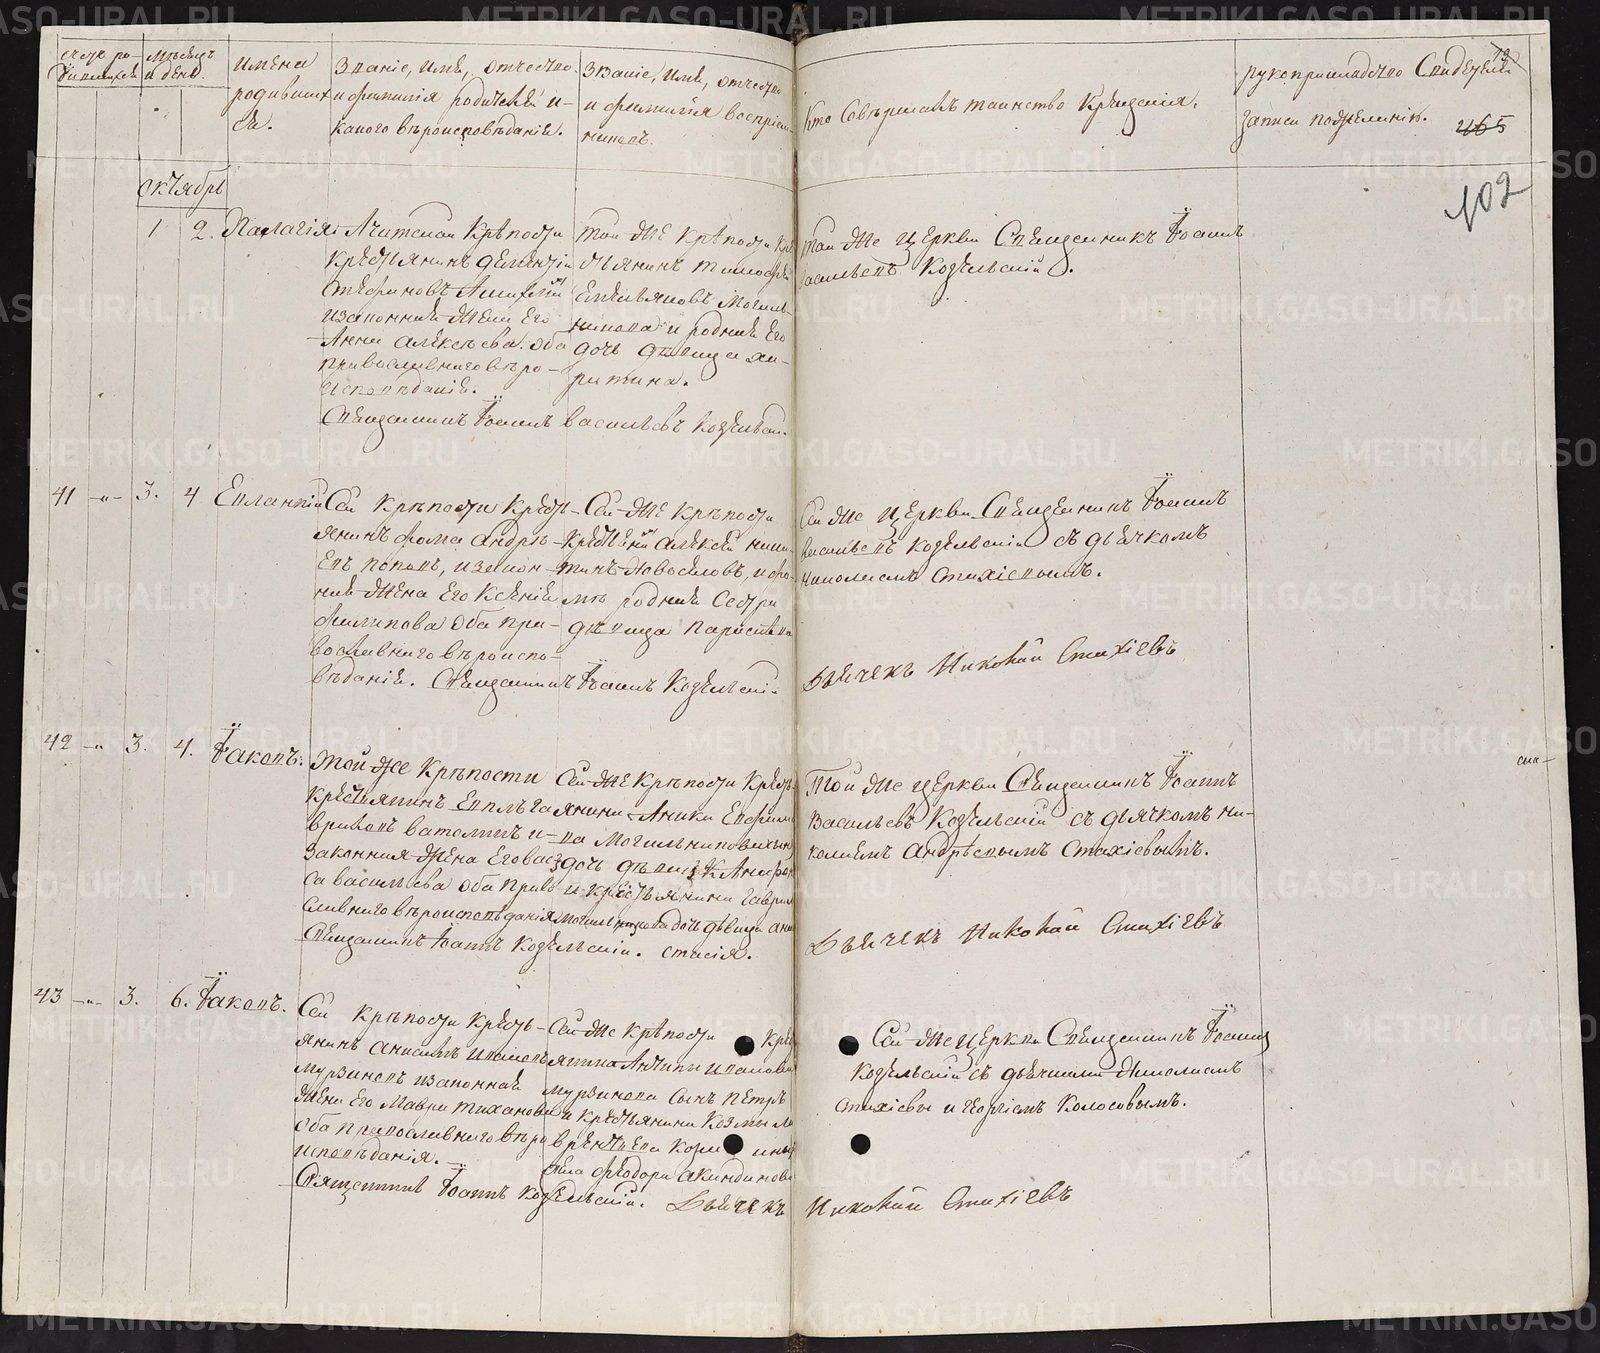 Счетъ ро-
дившихся
Мѣсяцъ
и день.
имена
родивших
ся.
Званіе, имя, отчество
и фамилія родителей и
какого вѣроисповѣданія.
Званіе, имя, отчество
и фамилія воспріем
никовъ.
Кто Совершалъ таинство Крещенія.
рукоприкладство Свидетелей
записи пожеланію.
465
102
октябрь
1 2. Палагія
Ачитской Крѣпости
Крестьянинъ Дементій
Стефановъ
и законная жена Его
Анна Алексѣева. Оба
православнаго вѣро-
исповѣданія.
Священникъ Іоаннъ Васильевъ Козельскій
Той же Крѣпости Кре
стьянинъ Тимофей
Емельяновъ Могиль
никовъ и родная Его
дочь дѣвица Ха-
ритина.
Той же Церкви Священникъ Іоаннъ
Васильевъ Козельскій.
41 -"- 3. 4 Евлампій
Сей Крѣпости Кресть-
янинъ Фома Андрѣ-
евъ Поповъ, и закон-
ная жена Его Ксенія
Филипова Оба пра-
вославнаго вѣроиспо-
вѣданія. Священникъ Іоаннъ Козельскій
Сей же Крѣпости
Алексей Ники-
тинъ Новоселовъ,
родная Сестра
дѣвица
Сей же Церкви Священникъ Іоаннъ
Васильевъ Козельскій съ дьячкомъ
Николаемъ Стахіевымъ.
Дьячекъ Николай Стахіевъ
42 -"- 3. 4. Іаковъ.
Той же Крѣпости
Крестьянинъ Евлъ Га
вриловъ Ватолинъ и
законная жена Его Васи
са Васильева Оба право
славнаго вѣроисповѣданія
Священникъ Іоаннъ Козельскій.
Сей же Крѣпости Кресть
янина Аники
ва Могильникова
дочь дѣвица
и Крестьянина Гаврил
Могильникова дочь дѣвица Ана
стасія.
Той же Церкви Священникъ Іоаннъ
Васильевъ Козельскій съ дьячкомъ Ни-
колаемъ Андрѣевымъ Стахіевымъ.
Дьячекъ Николай Стахіевъ
43 -"- 3. 6. Іаковъ.
Сей Крѣпости Кресть-
янинъ Анисимъ Ивановъ
Мурзиновъ и законная
жена Его Мавра Тиханова
Оба православнаго вѣро
исповѣданія.
Священникъ Іоаннъ Козельскій.
Сей же Крѣпости Кре
янина Антипы Иванова
Мурзинова Сынъ Петръ
и Крестьянина Козмы Ла
врентьева
Феодора Акиндинова
Сей же Церкви Священникъ Іоаннъ
Козельскій съ дьячками Николаемъ
Стахіевы и Георгіемъ Колосовымъ.
Дьячекъ Николай Стахіевъ